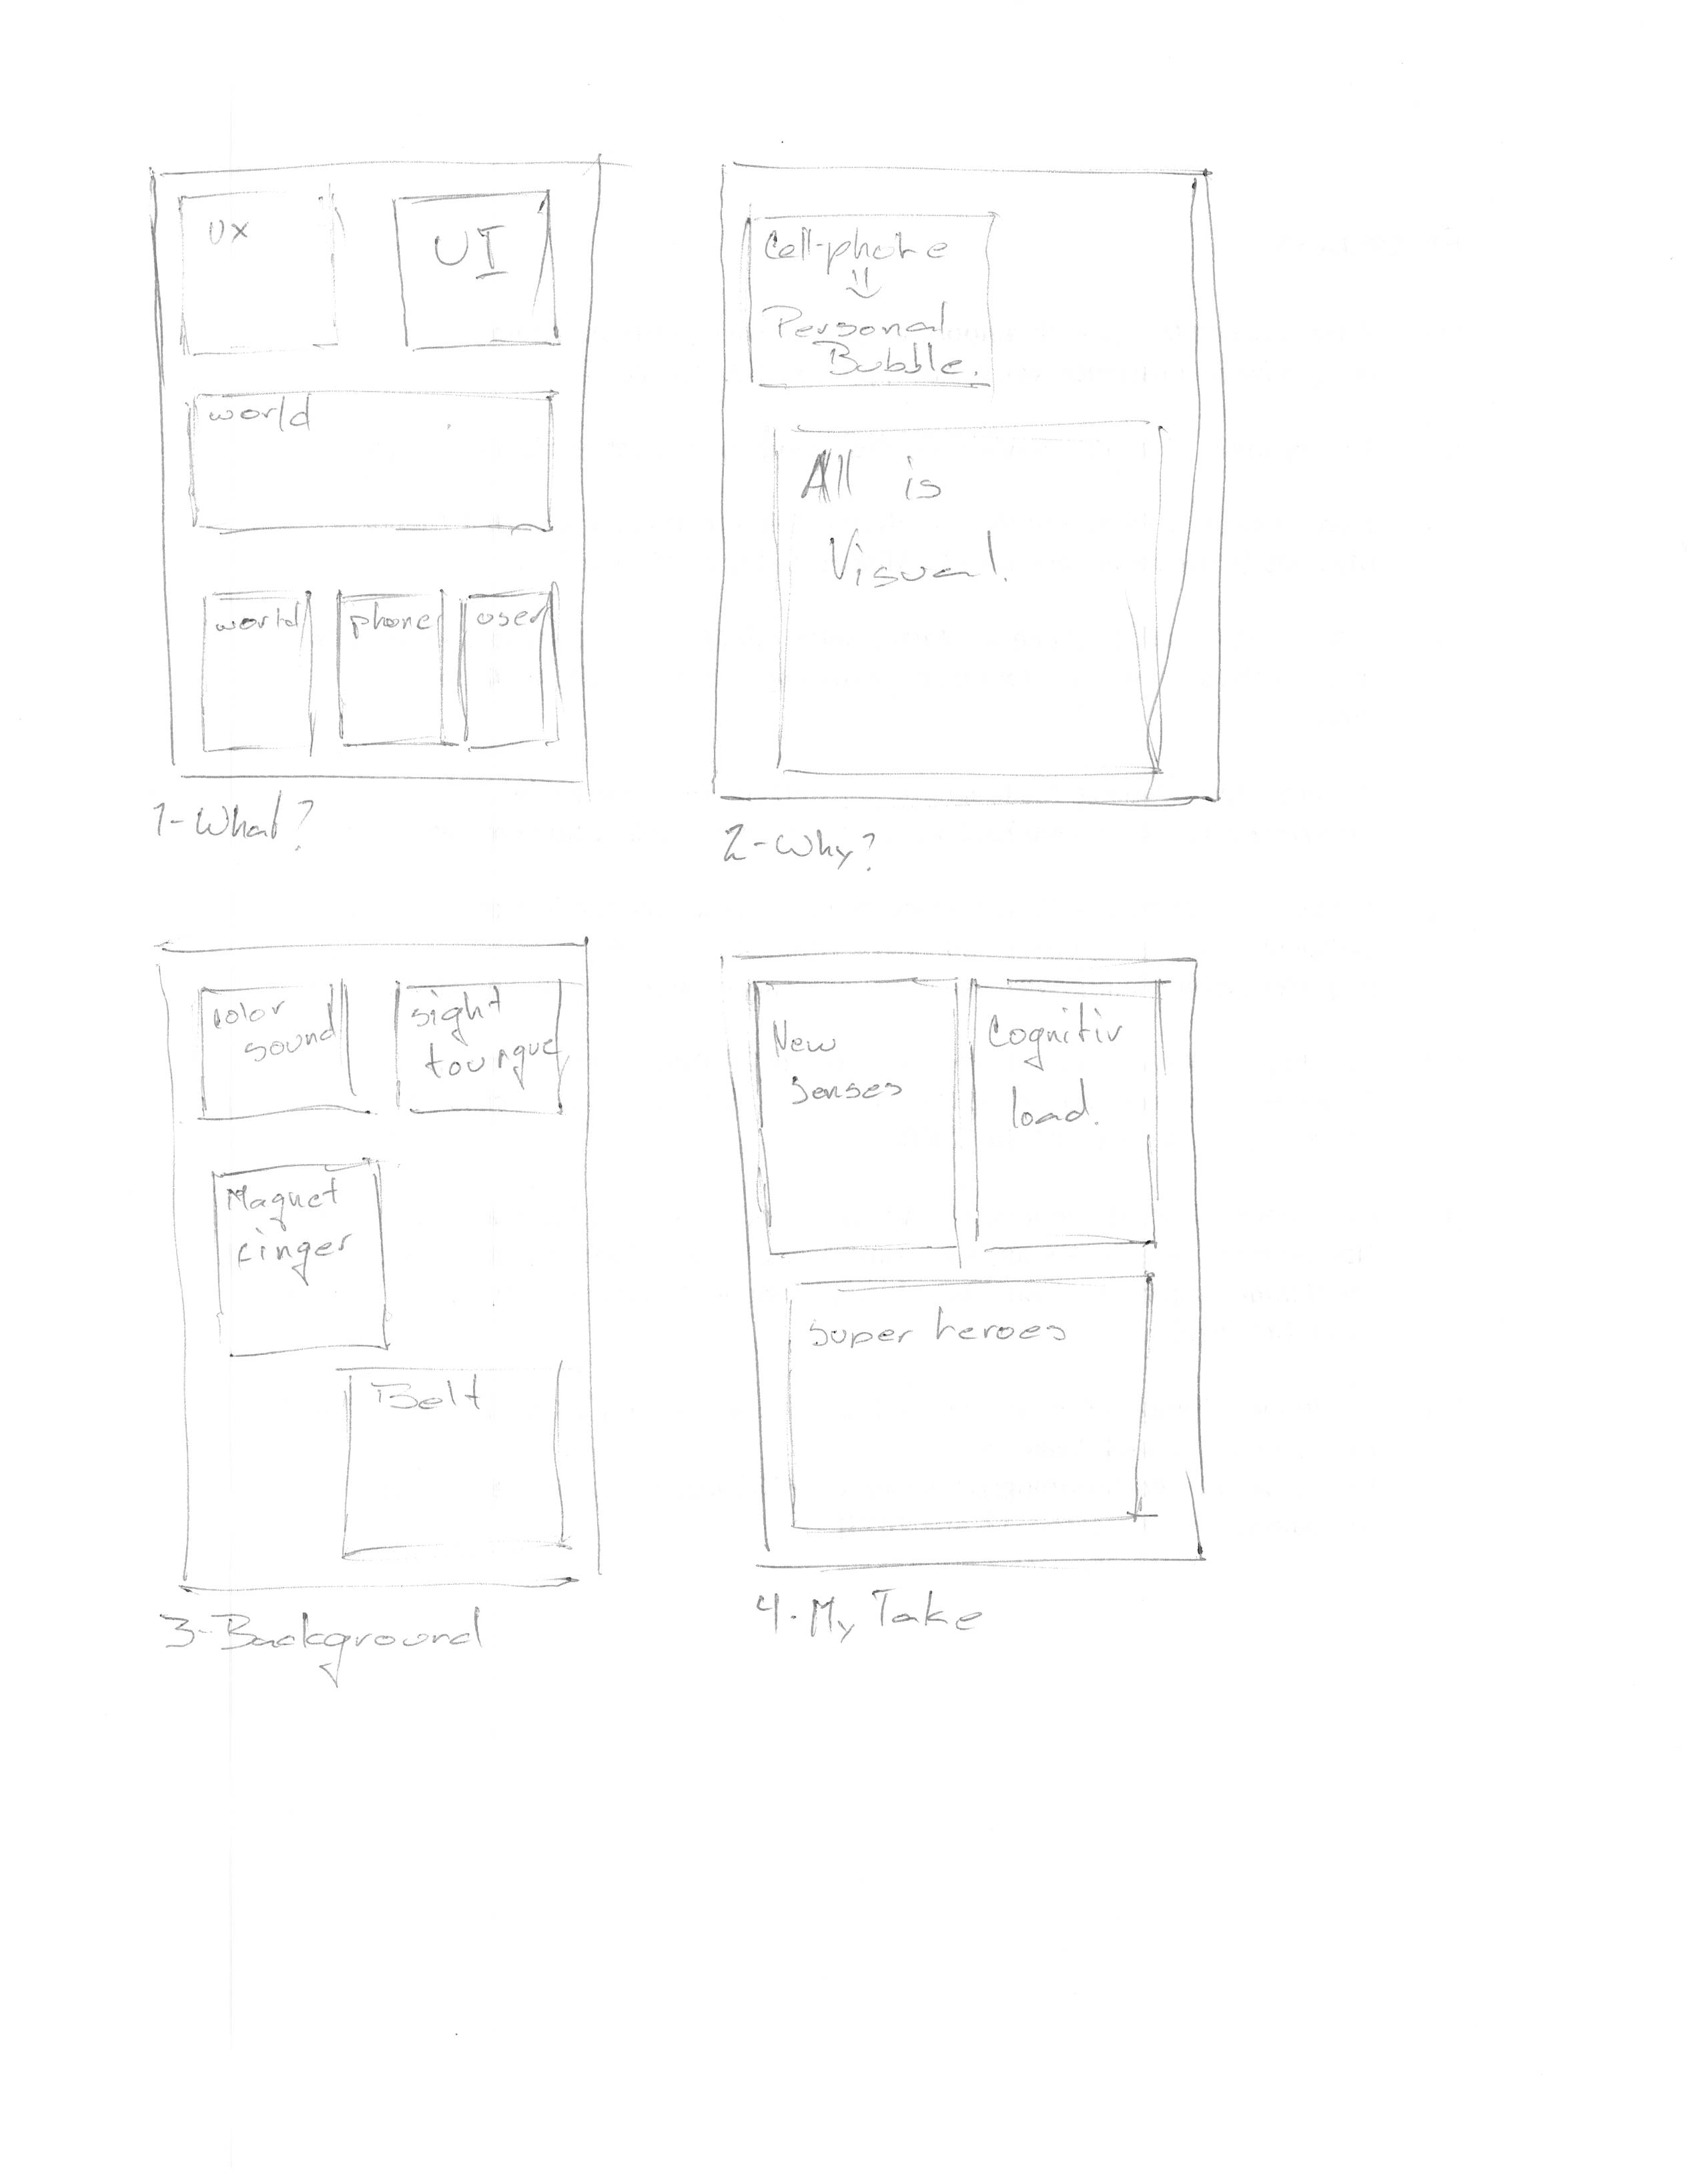 UX
UI
world
world
phone
user
1-What?
Cell-phone
⇓
Personal
Bubble.
All is
Visual.
2-Why?
color
sound
sight
tourgue
Magnet
finger
Belt
3-Background
New
Senses
Cognitiv
load.
super heroes
4-My Take